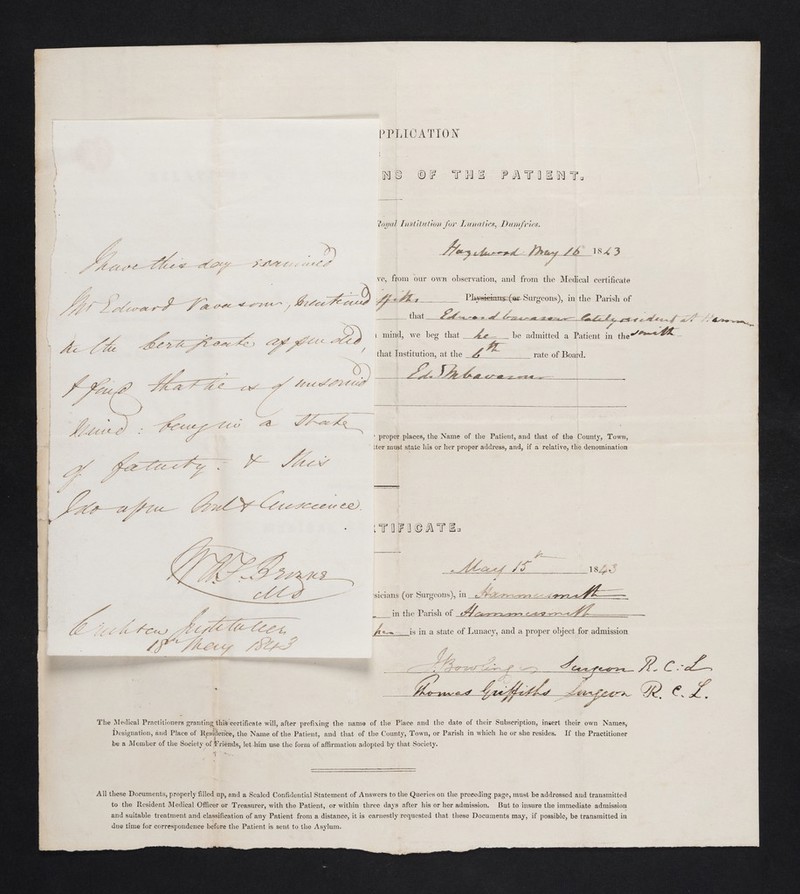 I have this day examined
Mr Edward Vavasour, mentioned
in the Certificate appended,
& find that he is of unsound
Mind: being in a State
of fatuity. & this
I do upon Soul & Conscience.
W A F Browne
MD
Crichton Institution
18th May 1843
PPLICATION
NS OF THE PATIENT.
Royal Institution for Lunatics, Dumfries.
Hazelwood May 16 1843
ve, from our own observation, and from the Medical certificate
Physicians (or Surgeons), in the Parish of
that Edward Vavasour lately resident at Hammer
smith
mind, we beg that he be admitted a Patient in the
that Institution, at the 6th rate of Board.
Ed. Vavasour
proper places, the Name of the Patient, and that of the County, Town,
tter must state his or her proper address, and, if a relative, the denomination
TIFICATE.
May 15th 1843
sicians (or Surgeons), in Hammersmith
in the Parish of Hammersmith
is in a state of Lunacy, and a proper object for admission
J Bowling Surgeon R. C. L
Thomas Griffiths Surgeon R. C. L.
The Medical Practitioners granting this certificate will, after prefixing the name of the Place and the date of their Subscription, insert their own Names,
Designation, and Place of Residence, the Name of the Patient, and that of the County, Town, or Parish in which he or she resides. If the Practitioner
be a Member of the Society of Friends, let him use the form of affirmation adopted by that Society.
All these Documents, properly filled up, and a Sealed Confidential Statement of Answers to the Queries on the preceding page, must be addressed and transmitted
to the Resident Medical Officer or Treasurer, with the Patient, or within three days after his or her admission. But to insure the immediate admission
and suitable treatment and classification of any Patient from a distance, it is earnestly requested that these Documents may, if possible, be transmitted in
due time for correspondence before the Patient is sent to the Asylum.